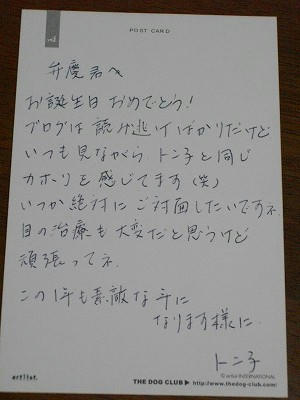 POST CARD
弁慶君へ
お誕生日 おめでとう!
ブログは 読み逃げばかりだけど
いつも見ながら トン子と同じ
カホリを感じてます(笑)
いつか絶対に ご対面したいですネ
目の治療も大変だと思うけど
頑張ってネ
この1年も素敵な年に
なります様に
トン子
© artlist INTERNATIONAL
artlist.
THE DOG CLUB ▶ http://www.thedog-club.com/